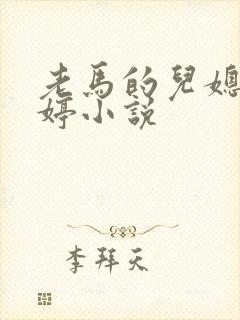 老馬的兒媳
婷小說
李拜天